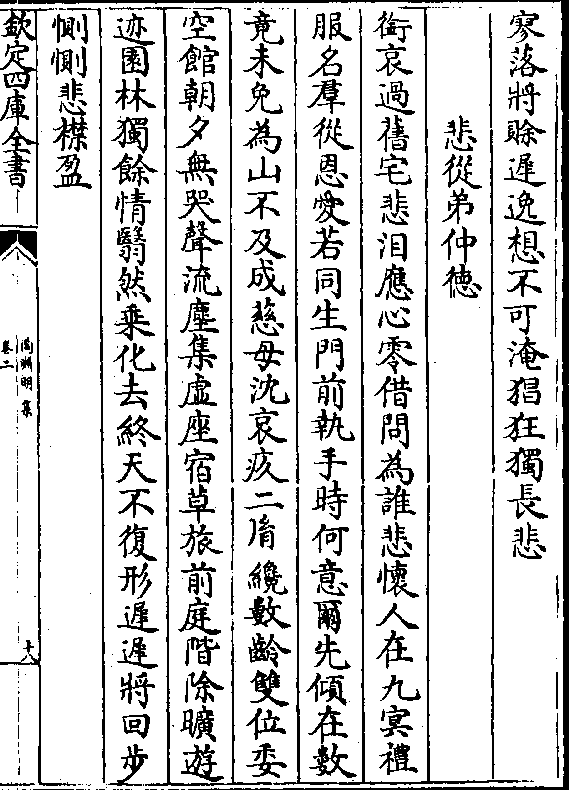 寥落將賖遲逸想不可淹猖狂獨長悲
悲從弟仲德
銜哀過舊宅悲泪應心零借問為誰悲懷人在九冥禮
服名羣從恩愛若同生門前執手時何意爾先傾在數
竟未免為山不及成慈母沈哀疚二𦙍纔數齡雙位委
空館朝夕無哭聲流塵集虛座宿草旅前庭階除曠遊
迹園林獨餘情翳然乗化去終天不復形遲遲將回步
惻惻悲襟盈
欽定四庫全書
陶淵明集
卷二
十八